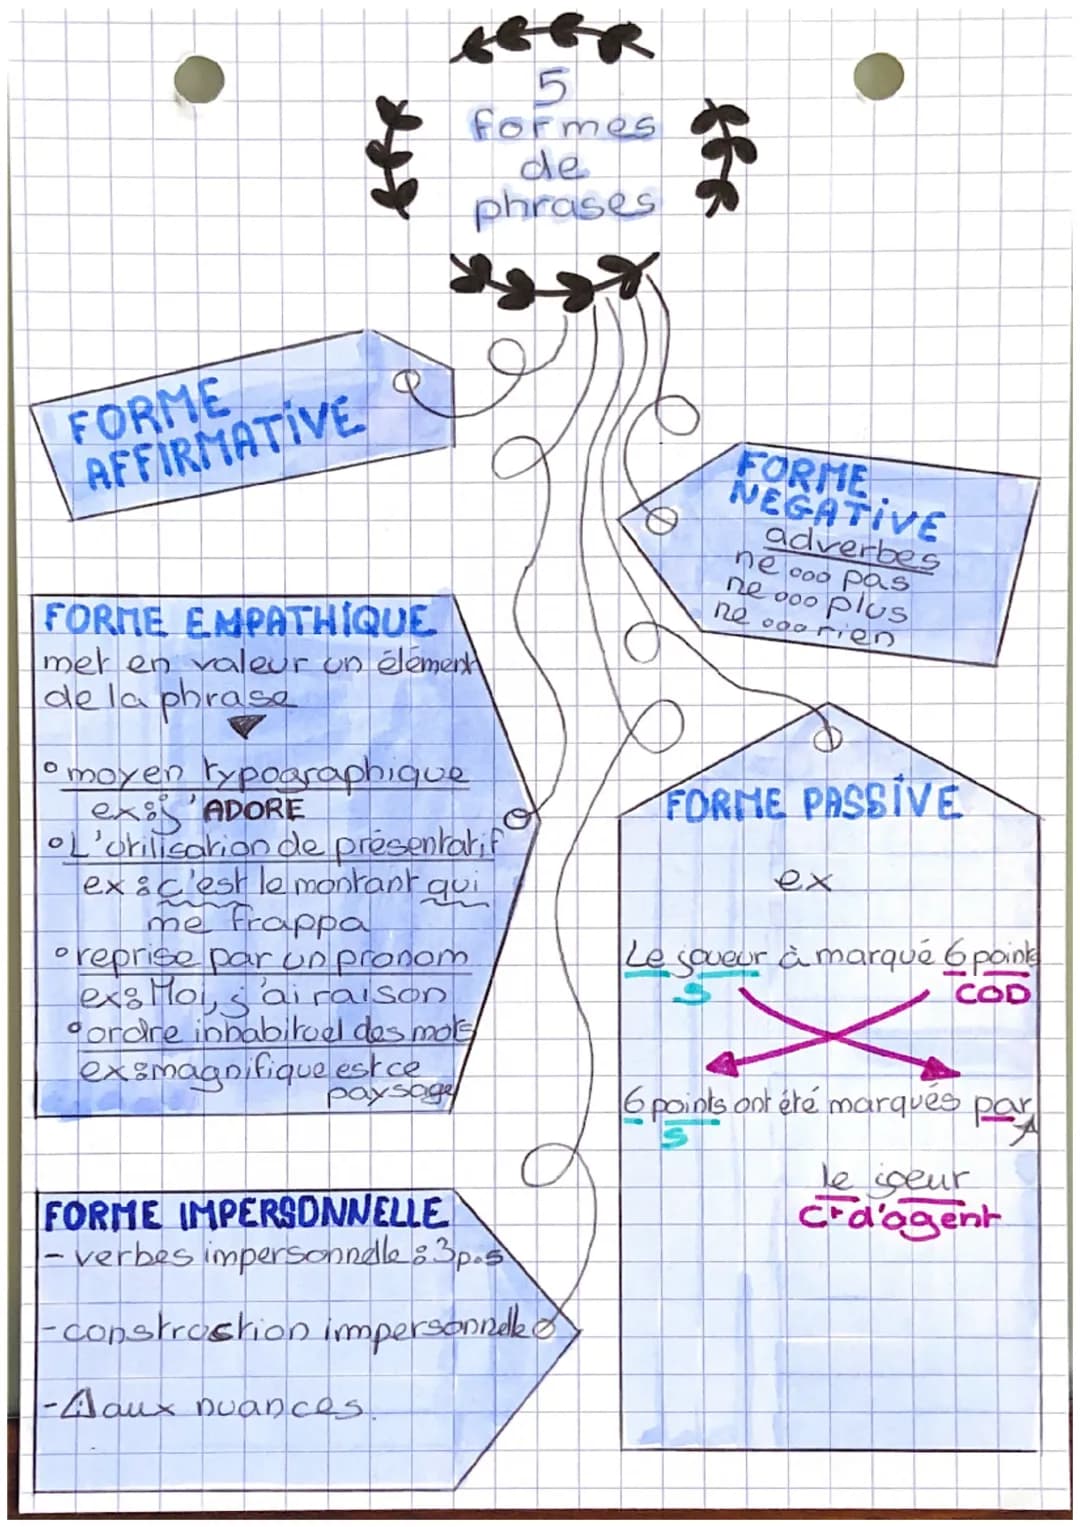 5
formes
de
phrases
FORME
AFFIRMATIVE
FORME
NEGATIVE
adverbes
ne ooo pas
ne ooo plus
ne ooo rien
FORME EMPATHIQUE
met en valeur un élément
de la phrase
° moyen typographique
ex : j'ADORE
° L'utilisation de présentatif
ex : c'est le montant qui
me frappa
° reprise par un pronom
ex : Moi, j'ai raison
° ordre inhabituel des mots
ex : magnifique est ce
paysage
FORME IMPERSONNELLE
- verbes impersonnelle : 3p.s
- construction impersonnelle
- ⚠ aux nuances.
FORME PASSIVE
ex
Le joueur à marqué 6 points
S COD
6 points ont été marqués par
S
le joeur
Ct d'agent